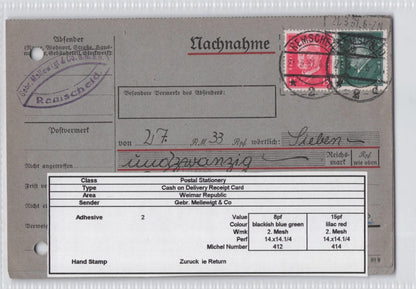 Absender
Nachnahme
Gebr. Mellewigt & Co. G.m.b.H.
Remscheid
REMSCHEID
2
Besondere Vermerke des Absenders:
Postvermerk
von 27 R.M 33 Rpf wörtlich: Sieben
undzwanzig Reichsmark Rpf wie oben
Nicht angetroffen
Class Postal Stationery
Type Cash on Delivery Receipt Card
Area Weimar Republic
Sender Gebr. Mellewigt & Co
Adhesive 2 Value 8pf 15pf
Colour blackish blue green lilac red
Wmk 2. Mesh 2. Mesh
Perf 14.x14.1/4 14.x14.1/4
Michel Number 412 414
Hand Stamp Zuruck ie Return